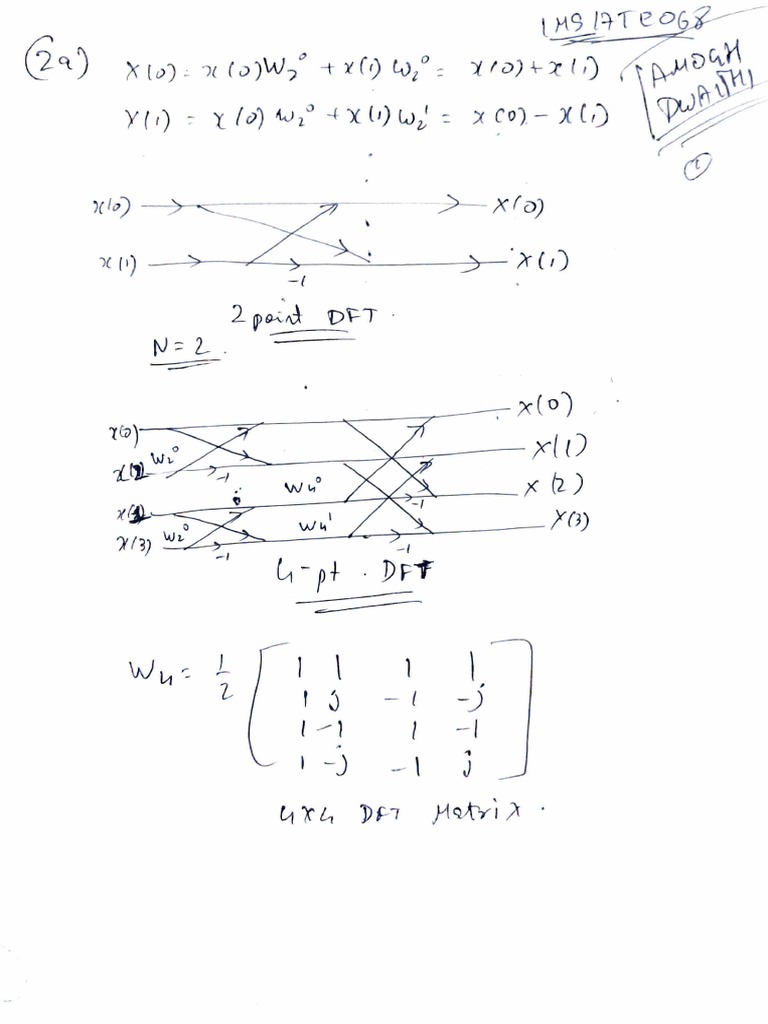 1MS17TE068
AMOGH
DWAITHI
①
(2a) X(0) = x(0)W₂⁰ + x(1) W₂⁰ = x(0) + x(1)
X(1) = x(0) W₂⁰ + x(1) W₂¹ = x(0) - x(1)
x(0) X(0)
x(1) -1 X(1)
2 point DFT.
N = 2.
x(0) X(0)
W₂⁰ -1 X(1)
W₄⁰ -1 X(2)
x(3) W₂⁰ -1 W₄¹ -1 X(3)
4-pt. DFT
W₄ = 1/2
1 1 1 1
1 j -1 -j
1 -1 1 -1
1 -j -1 j
4x4 DFT Matrix.